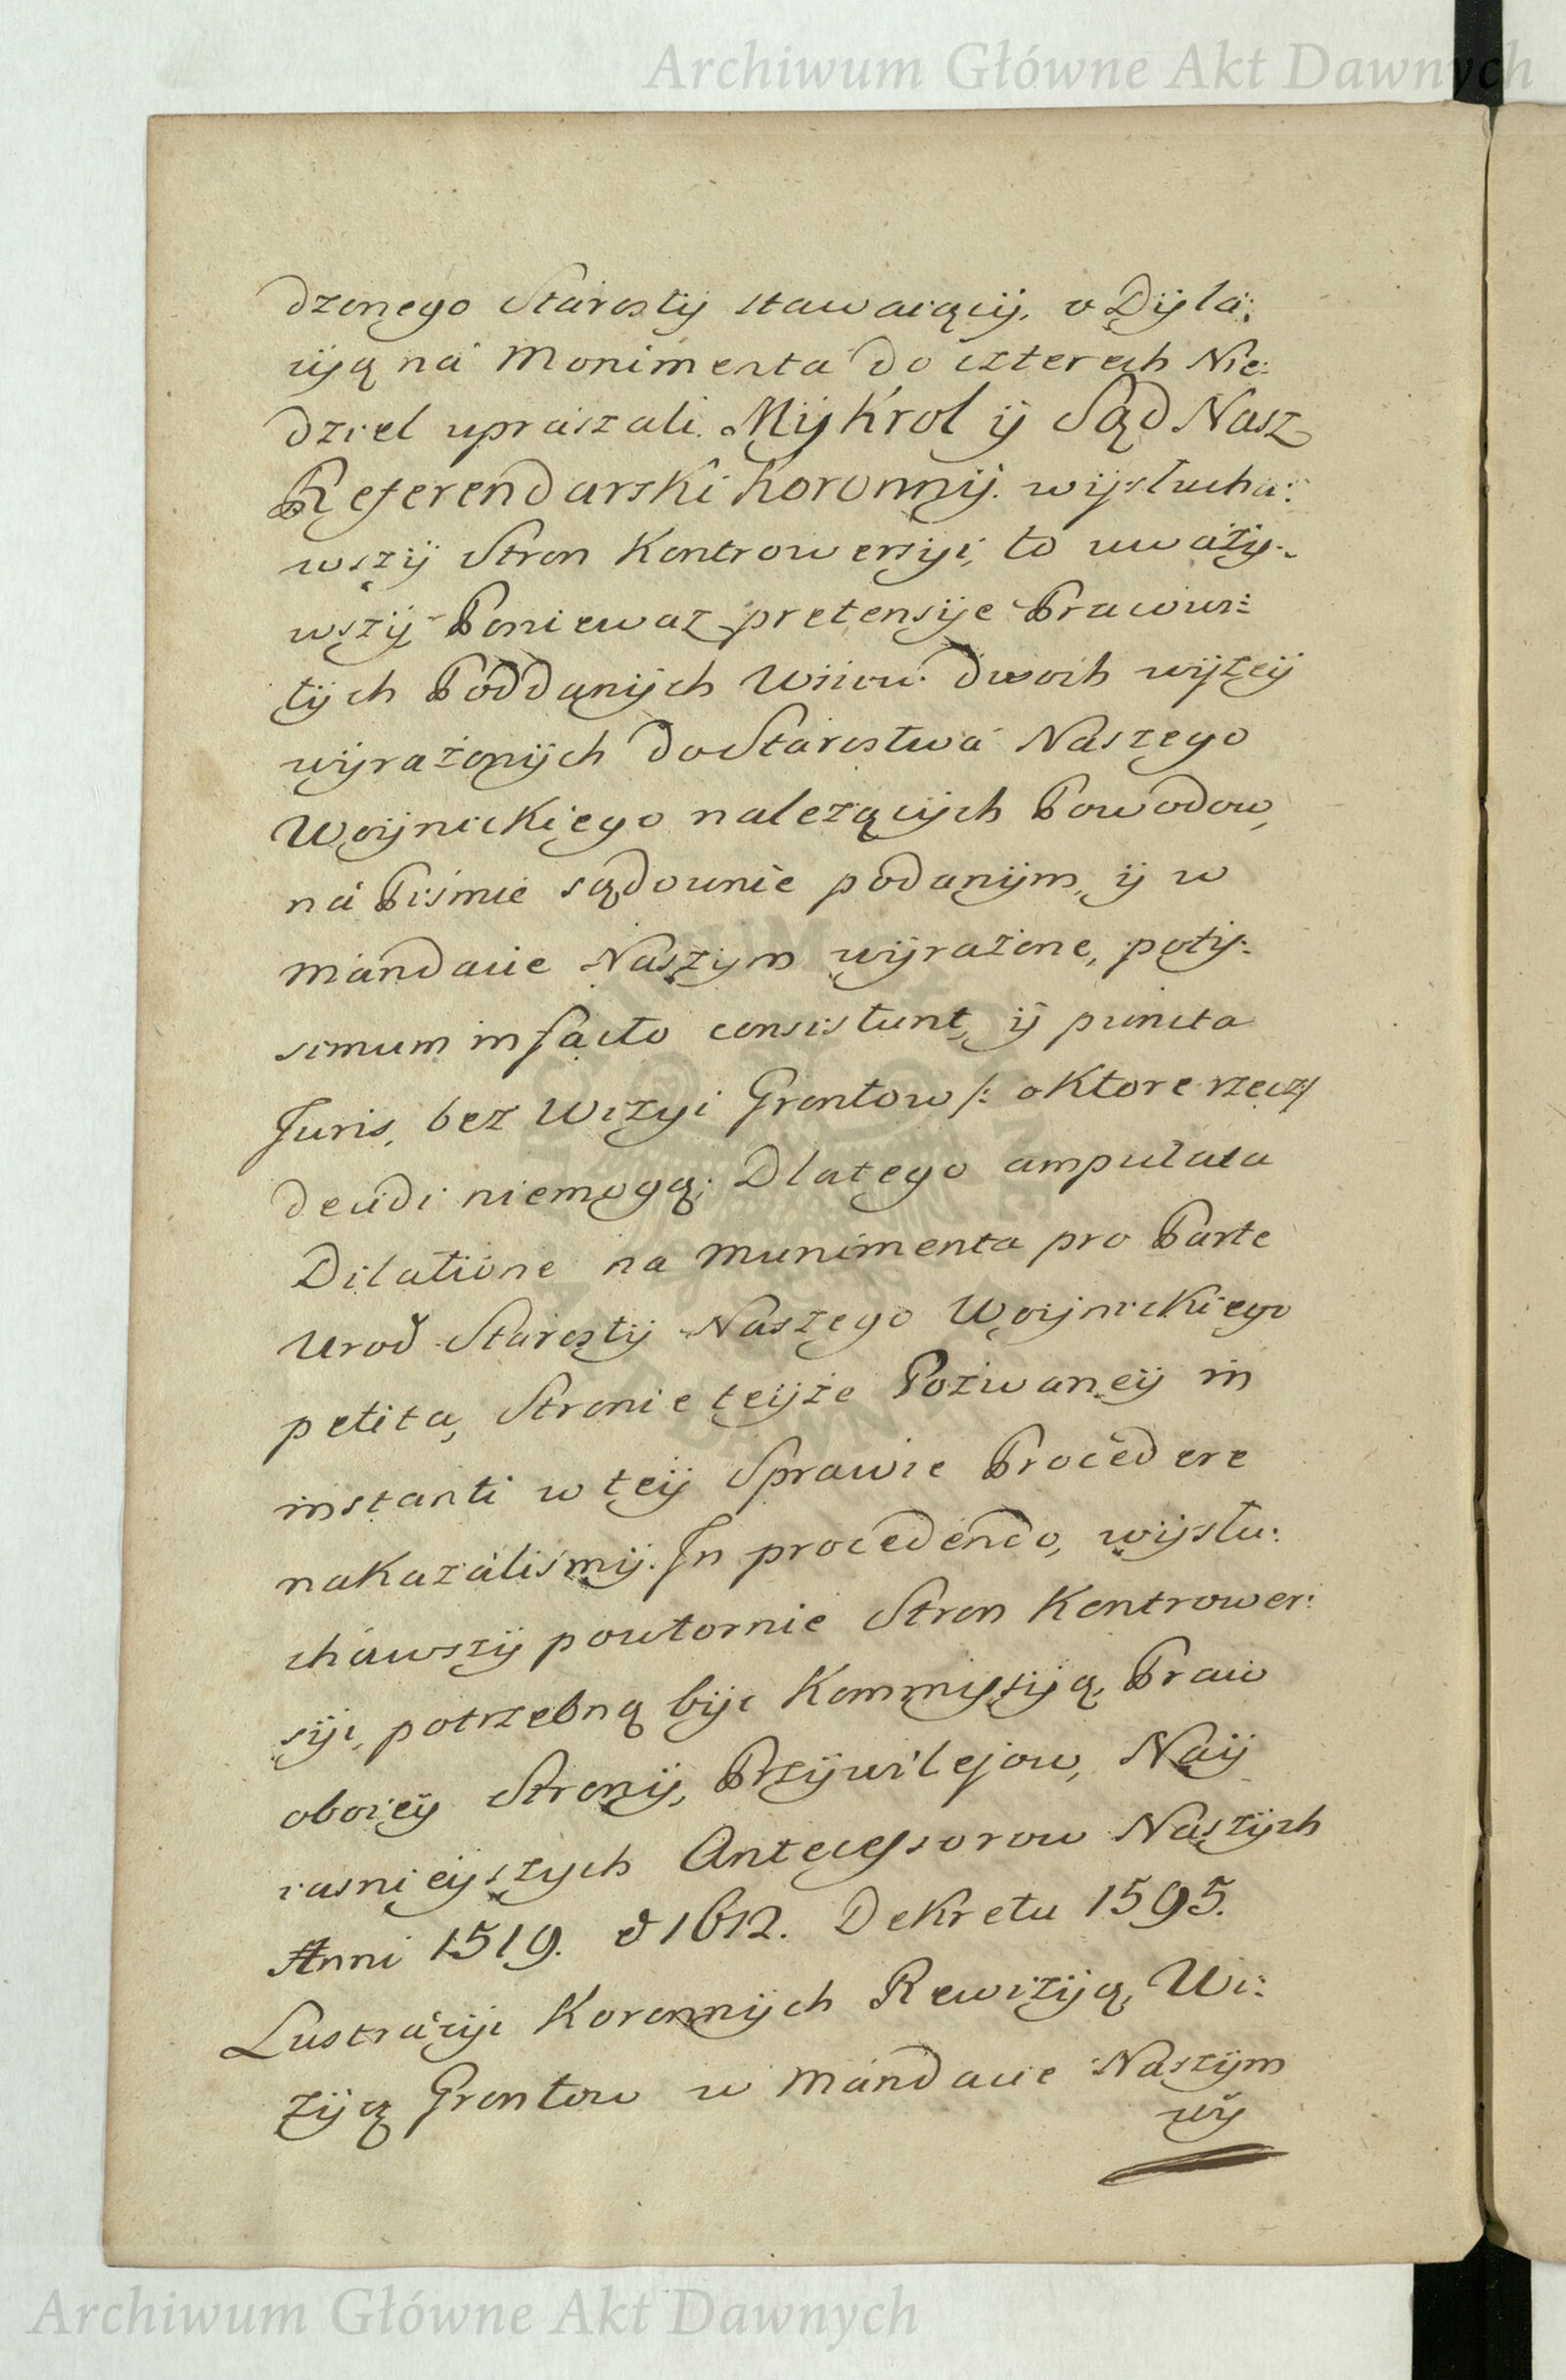 Archiwum Główne Akt Dawnych
dzonego Starosty stawaiący, o Dyla:
cyą na Monimenta do czterech Nie:
dziel upraszali. My Krol y Sąd Nasz
Referendarski Koronny. wysłucha:
wszy Stron Kontrowersyi, to uważy:
wszy Poniewaz pretensye Pracowi:
tych Poddanych Wsiow dwoch wyżey
wyrażonych do Starostwa Naszego
Woynickiego należących Powodow,
na Piśmie sądownie podanym, y w
mandacie Naszym wyrażone, poty:
simum in facto consistunt, y puncta
Juris, bez Wizyi Grontow /: o ktore rzecz :/
decidi niemogą; Dlatego amputata
Dilatione na munimenta pro Parte
Urod Starosty Naszego Woynickiego
petita, Stronie teyże Pozwaney in
instanti w tey Sprawie Procedere
nakazaliśmy. In procedendo, wysłu:
chawszy powtornie Stron Kontrower:
syi, potrzebną byc Kommissyą, Praw
oboiey Strony, Przywilejow, Nay
iasnieyszych Antecessorow Naszych
Anni 1519. & 1612. Dekretu 1595.
Lustracyi Koronnych Rewizyą, Wi:
zyą Grontow w Mandacie Naszym
wy
Archiwum Główne Akt Dawnych